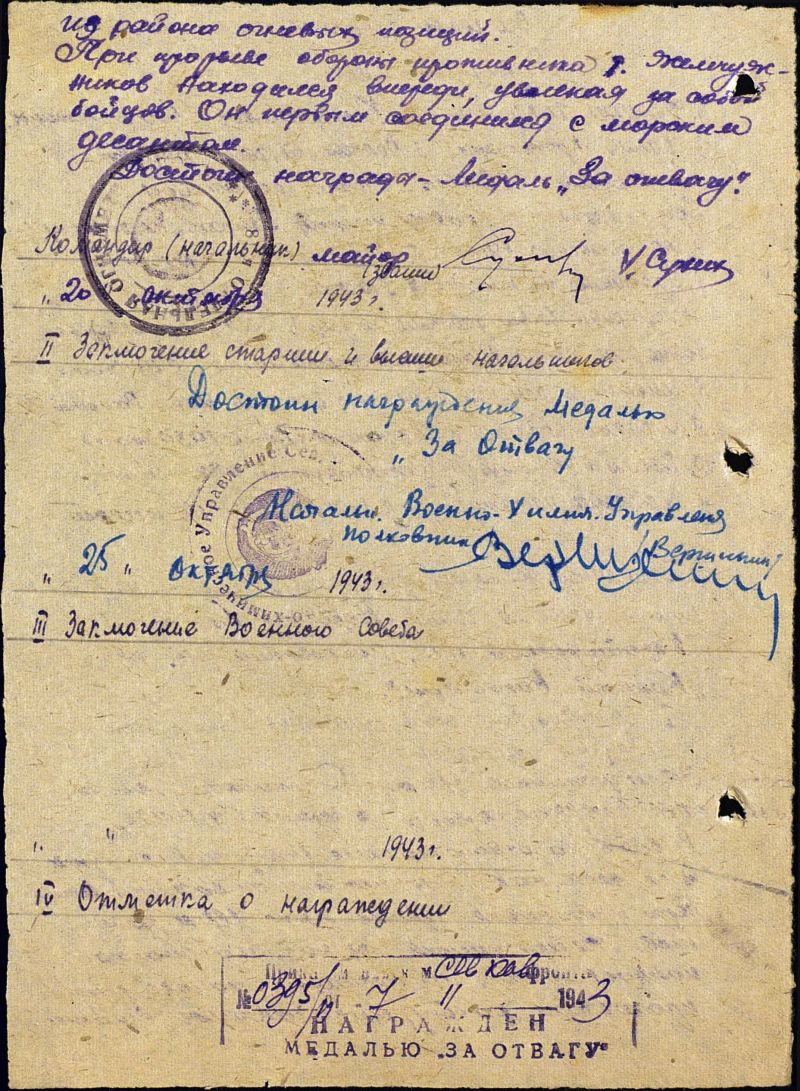 из района огневых позиций.
При прорыве обороны противника т. Жемчуж-
ников находился впереди, увлекая за собой
бойцов. Он первым соединился с морским
десантом.
Достоин награды - Медаль „За отвагу".
Командир (начальник) майор
(звание)
„20 октября 1943 г.
II Заключение старши и высши начальников
Достоин награждения Медалью
„За Отвагу
Началь. Военно-Химич. Управления
полковник (Вершинин)
„25„ октября 1943 г.
III Заключение Военного Совета
„ „ 1943 г.
IV Отметка о награждении
Приказ войск м Сев Кав фронта
№0395/н от 7 11 1943
НАГРАЖДЕН
МЕДАЛЬЮ „ЗА ОТВАГУ"